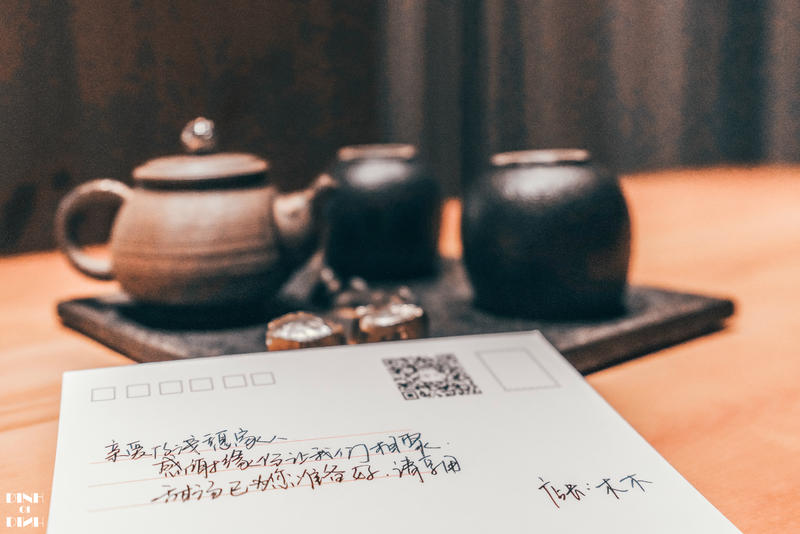 亲爱的浅憩家人
感谢缘份让我们相聚.
甜汤已为您准备好,请享用
店长:木木
DINH
OI
DINH